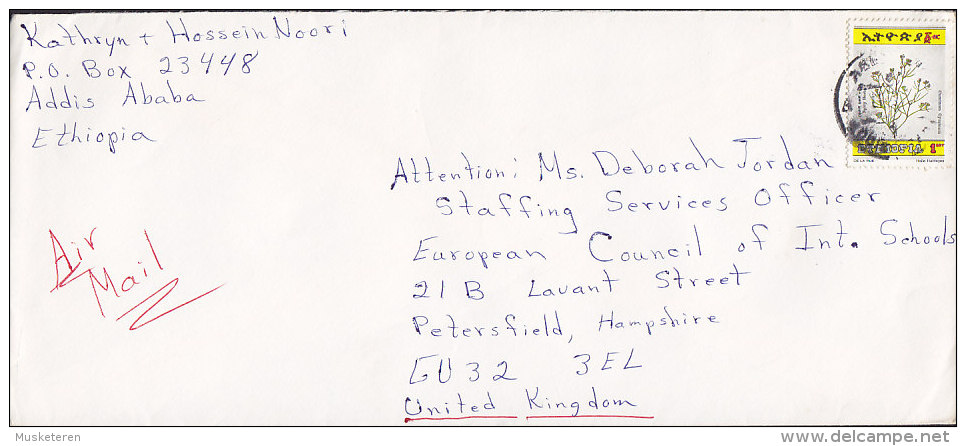 Kathryn + Hossein Noori
P.O. Box 23448
Addis Ababa
Ethiopia
ኢትዮጵያ
ETHIOPIA 1
DE LA RUE
Attention: Ms. Deborah Jordan
Staffing Services Officer
European Council of Int. Schools
21B Lavant Street
Petersfield, Hampshire
GU32 3EL
United Kingdom
Air
Mail
Musketeren
delcampe.net